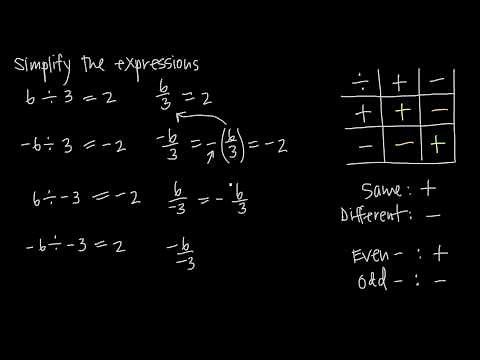 Simplify the expressions
6 ÷ 3 = 2   6/3 = 2
-6 ÷ 3 = -2   -6/3 = -(6/3) = -2
6 ÷ -3 = -2   6/-3 = - 6/3
-6 ÷ -3 = 2   -6/-3
÷ + -
+ + -
- - +
Same : +
Different : -
Even - : +
Odd - : -